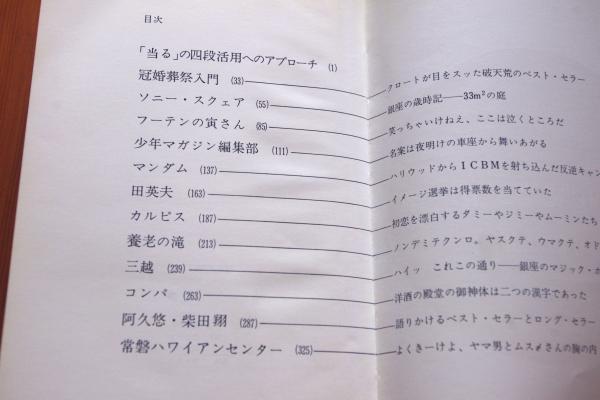 目次
「当る」の四段活用へのアプローチ (1)
冠婚葬祭入門 (33) クロートが目をスッた破天荒のベスト・セラー
ソニー・スクェア (55) 銀座の歳時記——33m²の庭
フーテンの寅さん (85) 笑っちゃいけねえ、ここは泣くところだ
少年マガジン編集部 (111) 名案は夜明けの車座から舞いあがる
マンダム (137) ハリウッドからICBMを射ち込んだ反逆キャン
田英夫 (163) イメージ選挙は得票数を当てていた
カルピス (187) 初恋を漂白するダミーやジミーやムーミンたち
養老の滝 (213) ノンデミテクンロ。ヤスクテ、ウマクテ、オド
三越 (239) ハイッ これこの通り——銀座のマジック・ホ
コンパ (263) 洋酒の殿堂の御神体は二つの漢字であった
阿久悠・柴田翔 (287) 語りかけるベスト・セラーとロング・セラー
常磐ハワイアンセンター (325) よくきーけよ、ヤマ男とムスメさんの胸の内